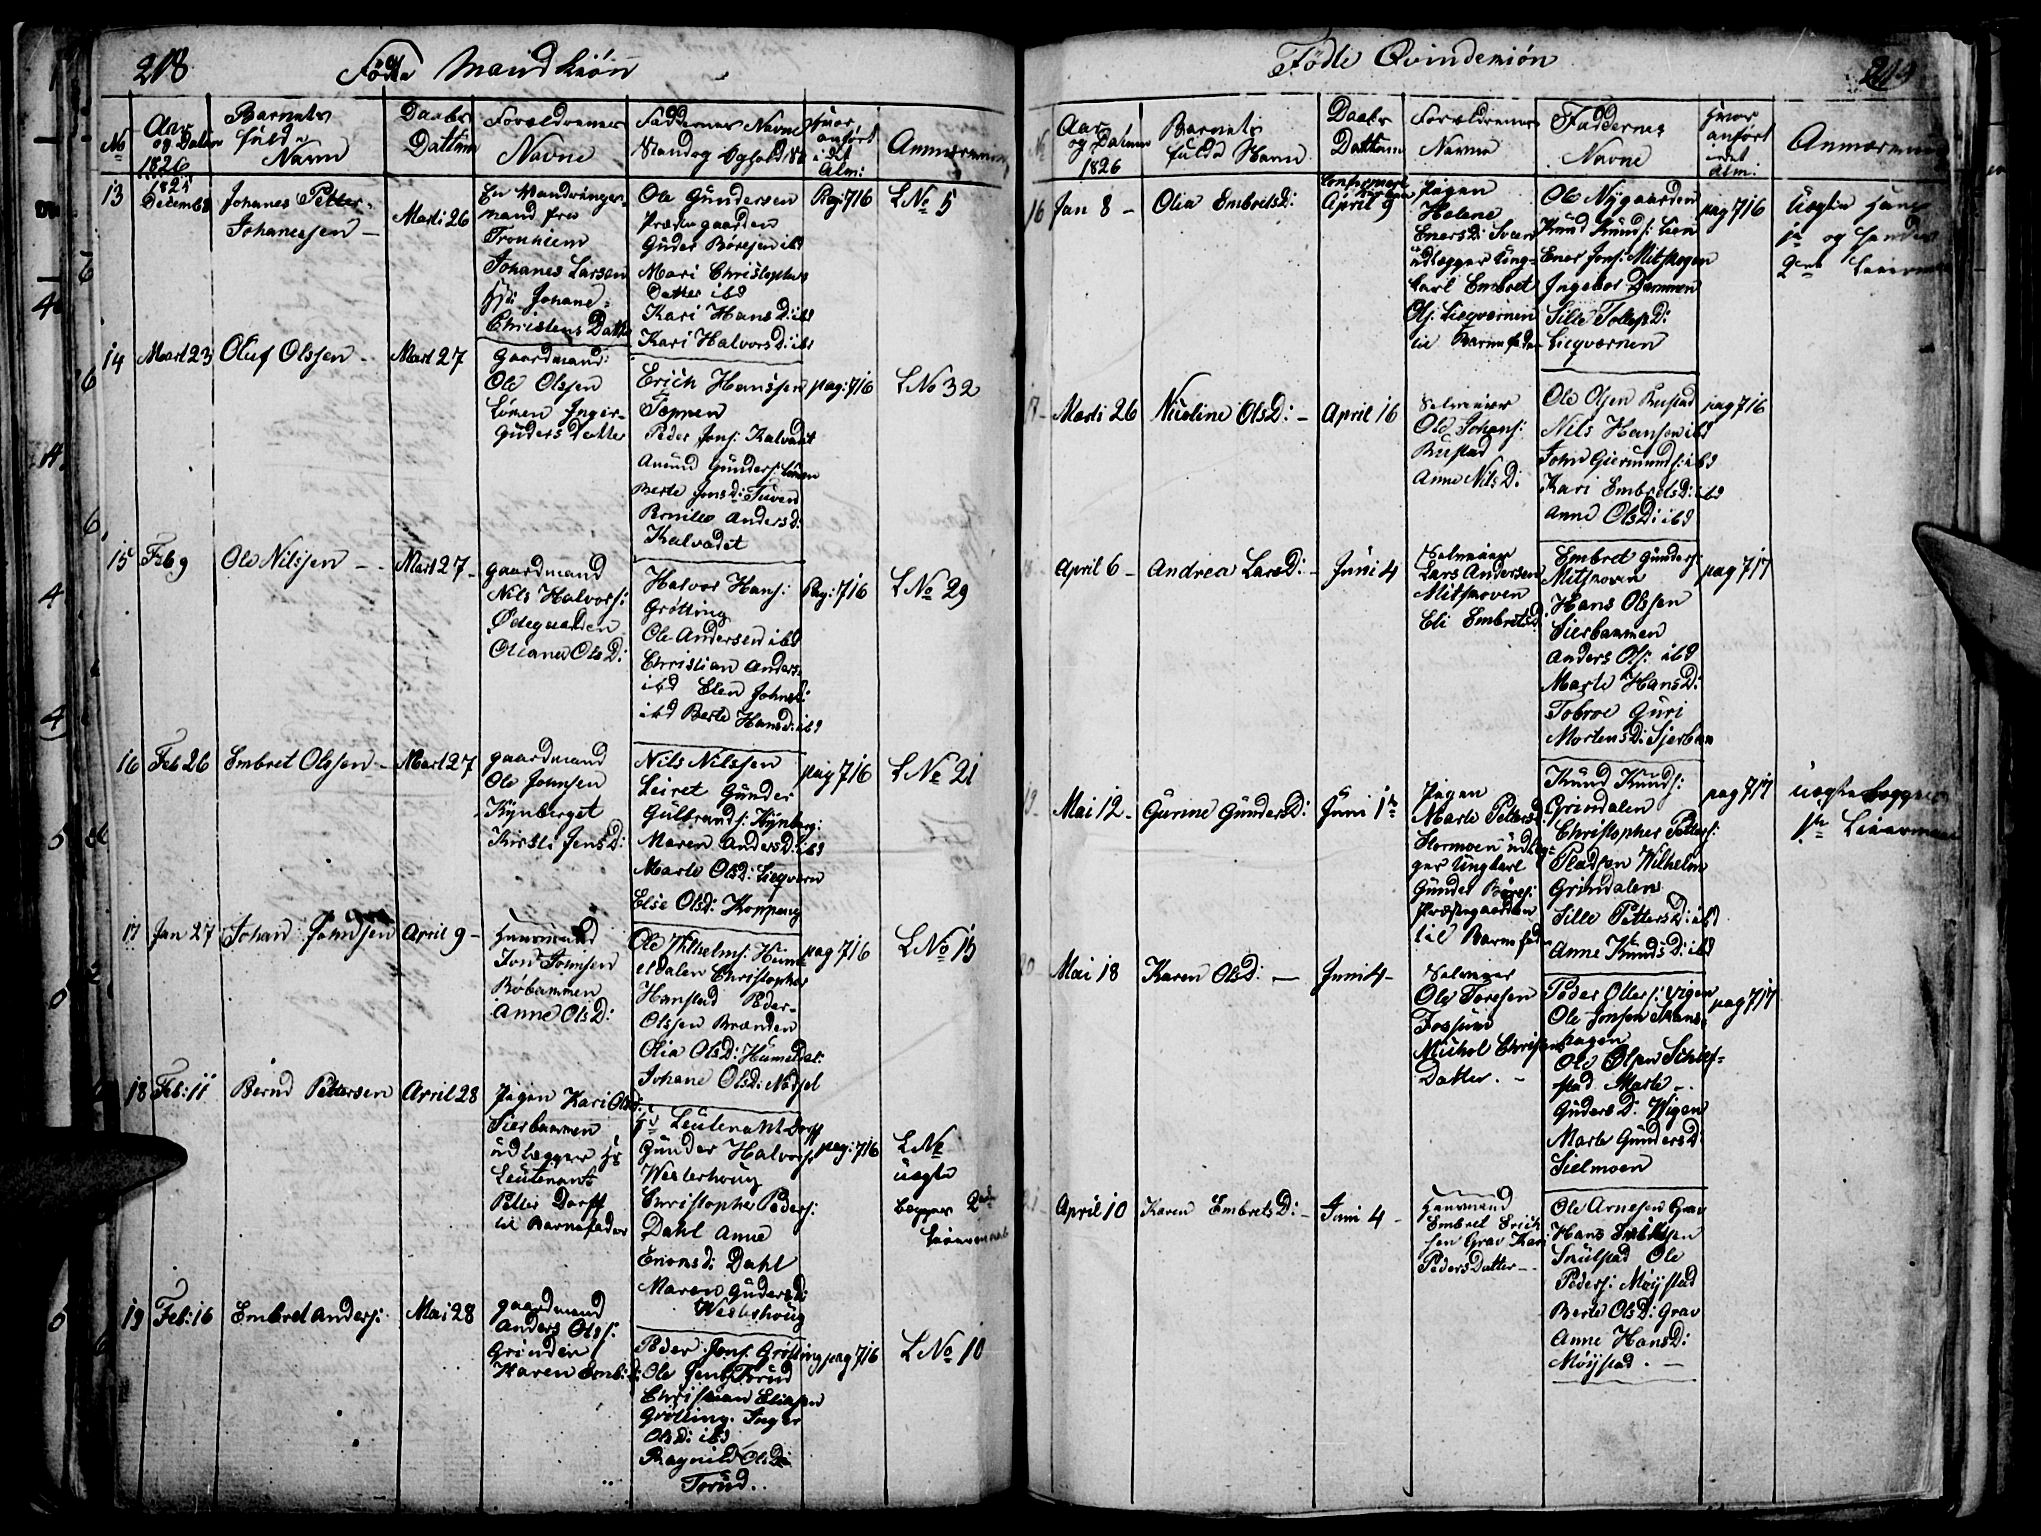 218
Fødte Mandkiøn
No
Aar og Datum 1826
Barnets fulde Navn
Daabs Dattum
Forældrenes Navne
Faddernes Navne Stand og Ophold St.
Hvor anført i det Alm:
Anmærkning
13
1825 Decemb 8
Johanes Petter Johanessen —
Marti 26
En Vandringsmand fra
Tronhiem
Johanes Larsen
Johane
Christens Datter
Ole Gundersen
Præstegaarden
Guder Børesen ibd
Mari Christophers
Datter ibd
Kari Hans D: ibd
Kari Halvors D: ibd
Pag: 716
L No 5
14
Mart 23
Oluf Olssen —
Mart 27
Gaardmand
Ole Olssen
Lønen Inger
Guders Datter
Erich Hanssen
Toppen
Peder Jons: Kalvadet
Amund Gunders: Lønen
Berte Jons D: Tuven
Pernille Anders D:
Kalvadet
pag: 716
L No 32
15
Feb 9
Ole Nilssen —
Mart 27
gaardmand
Nils Halvors:
Ødegaarden
Oleana Ols D:
Halvor Hans:
Grøtting
Ole Andersen ibd
Christian Anders:
ibd Elen Johns D:
ibd Berte Hans D: ibd
Pag: 716
L No 29
16
Feb 26
Embret Olssen —
Mart 27
gaardmand
Ole Johnsen
Kynberget
Kirsti Jens D:
Nils Nilssen
Leiret Gunder
Gulbrands: Kynberg:
Maren Anders D: ibd
Marte Ols D: Liegvern
Else Ols D: Koppang
pag 716
L No 21
17
Jan 27
Johan Johnsen
April 9 —
Huusmand
Jon Johnsen
Røbammen
Anne Ols D:
Ole Wilhelms: Hume
eldalen Christopher
Hanstad Peder
Olssen Brænden
Olia Ols D: Humeldal:
Johane Ols D: Nødset
pag 716
L No 15
18
Feb: 11
Bernd Pettersen
April 28
Pigen Kari Ols D:
Sierbammen
udlægger Hr
Leutenant
Petter Dorff
til Barnefader
Hr Leutenant Dorff
Gunder Halvors:
Westerhoug
Christopher Peders:
Dahl Anne
Enons D: Dahl
Maren Guders D:
Westerhoug
pag: 716
L No
uegte
begges 2den
Leiermaal
19
Feb: 16
Embret Anders:
Mai 28
gaardmand
Anders Ols:
Grinden
Karen Emb: D:
Peder Jons: Grøtting
Ole Jens: Torud
Christian Eliasen
Grøtting. Inger
Ols D: ibd
Ragnild Ols D:
Torud.
pag 716
L No 10
Fødte Qvindekiøn
219
No
Aar og Datum 1826
Barnets fulde Navn
Daabs Dattum
Forældrenes Navne
Faddernes Navne
Hvor anført i det Alm:
Anmærkning
16
Jan 8 —
Olia Embrets D:
April 9
Pigen
Helene
Eners D: Sveen
udlægger Ung-
karl Embret
Ols: Liegvernen
til Barnefader
Ole Nygaarden
Knud Knuds: Lien
Ener Jons: Mitskogen
Ingebor Dammen
Sille Tollefs D:
Liegvernen
pag 716
Uegte Hans
1te og hendes
2den Leiermaal
17
Marti 26
Nicoline Ols D: —
April 16
Selveier
Ole Johans:
Rustad
Anne Nils D:
Ole Olsen Rustad
Nils Hansen ibd
John Giermunds: ibd
Kari Embrets D: ibd
Anne Ols D: ibd
pag 716
18
April 6 —
Andrea Lars D: —
Juni 4
Selveier
Lars Andersen
Mitskoven
Eli Embrets D:
Embret Gunders:
Mitskoven
Hans Olssen
Sierbammen
Anders Ols: ibd
Marte Hans D:
Tobroe Guri
Mortens D: Sjerbam
pag 717
19
Mai 12 —
Gurine Gunders D:
Juni 1te
Pigen
Marte Petters D:
Stormoen udlæg-
ger Ungkarl
Gunder Børes:
Præstegaarden
til Barnefader
Knud Knuds:
Grindalen
Christopher Petters:
Pladsen Wilhelm
Grindalen
Sille Petters D: ibd
Anne Knuds D: ibd
pag 717
uegte begges
1te Leiermaal
20
Mai 18
Karen Ols D: —
Juni 4 —
Selveier
Ole Toresen
Fossum
Michol Christens
Datter. —
Peder Ollers: Vigen
Ole Jonsen Skans-
hagen
Ole Olsen Schief-
stad Marte
Guders D: Wigen
Marte Gunders D:
Sielmoen
pag 717
21
April 10
Karen Embrets D: —
Juni 4 —
Huusmand
Embret Erich
sen Grav Kari
Peders Datter —
Ole Arnesen Grav
Hans Embretsen
Snulstad Ole
Peders: Møystad
Berte Ols D: Grav
Anne Hans D:
Møystad. —